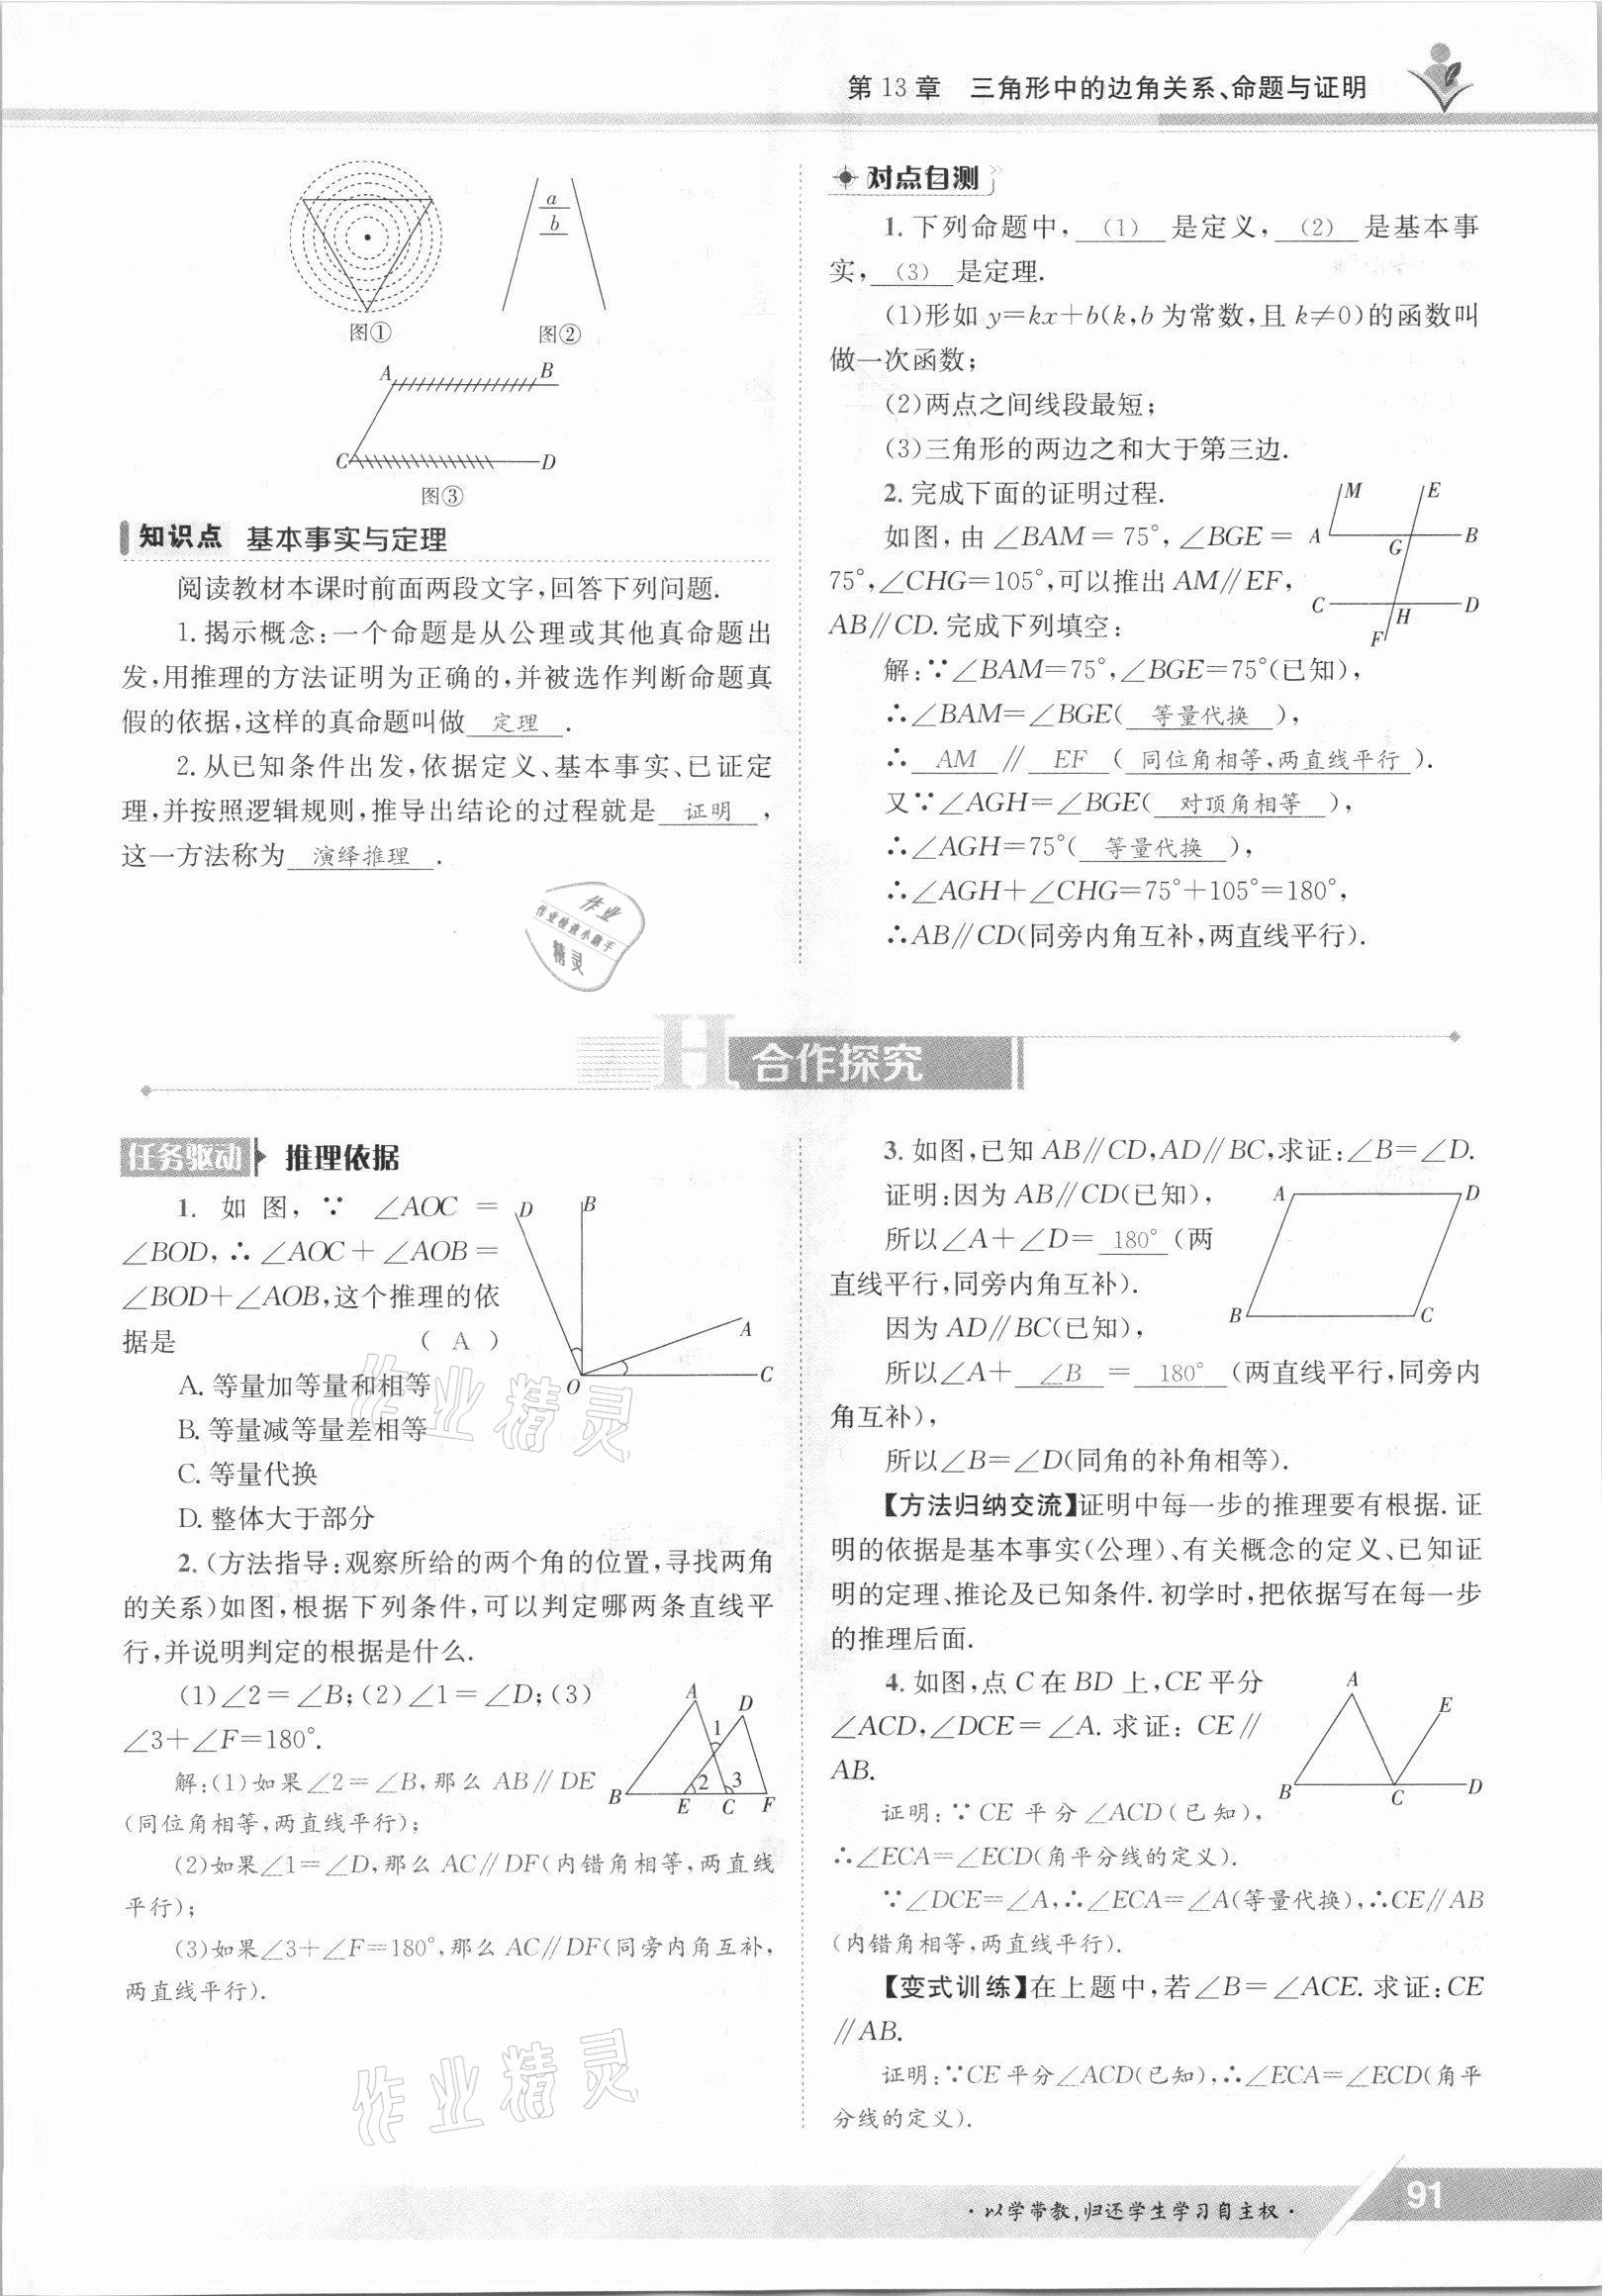 第 13 章 三角形中的边角关系、命题与证明
图①
a
b
图②
A
B
C
D
图③
知识点 基本事实与定理
阅读教材本课时前面两段文字,回答下列问题.
1. 揭示概念:一个命题是从公理或其他真命题出
发,用推理的方法证明为正确的,并被选作判断命题真
假的依据,这样的真命题叫做 定理 .
2. 从已知条件出发,依据定义、基本事实、已证定
理,并按照逻辑规则,推导出结论的过程就是 证明 ,
这一方法称为 演绎推理 .
对点自测
1. 下列命题中, (1) 是定义, (2) 是基本事
实, (3) 是定理.
(1)形如 y=kx+b(k,b 为常数,且 k≠0)的函数叫
做一次函数;
(2)两点之间线段最短;
(3)三角形的两边之和大于第三边.
2. 完成下面的证明过程.
如图,由∠BAM=75°,∠BGE=
75°,∠CHG=105°,可以推出 AM∥EF,
AB∥CD. 完成下列填空:
M
E
A
G
B
C
H
D
F
解:∵∠BAM=75°,∠BGE=75°(已知),
∴∠BAM=∠BGE( 等量代换 ),
∴ AM ∥ EF ( 同位角相等,两直线平行 ).
又∵∠AGH=∠BGE( 对顶角相等 ),
∴∠AGH=75°( 等量代换 ),
∴∠AGH+∠CHG=75°+105°=180°,
∴AB∥CD(同旁内角互补,两直线平行).
作业
作业检查小助手
精灵
H 合作探究
任务驱动 推理依据
1. 如图,∵ ∠AOC =
∠BOD,∴∠AOC+∠AOB=
∠BOD+∠AOB,这个推理的依
据是 ( A )
D
B
A
O
C
A. 等量加等量和相等
B. 等量减等量差相等
C. 等量代换
D. 整体大于部分
2. (方法指导:观察所给的两个角的位置,寻找两角
的关系)如图,根据下列条件,可以判定哪两条直线平
行,并说明判定的根据是什么.
(1)∠2=∠B;(2)∠1=∠D;(3)
∠3+∠F=180°.
A
D
1
2
3
B
E
C
F
解:(1)如果∠2=∠B,那么 AB∥DE
(同位角相等,两直线平行);
(2)如果∠1=∠D,那么 AC∥DF(内错角相等,两直线
平行);
(3)如果∠3+∠F=180°,那么 AC∥DF(同旁内角互补,
两直线平行).
3. 如图,已知 AB∥CD,AD∥BC,求证:∠B=∠D.
证明:因为 AB∥CD(已知),
所以∠A+∠D= 180° (两
直线平行,同旁内角互补).
因为 AD∥BC(已知),
A
D
B
C
所以∠A+ ∠B = 180° (两直线平行,同旁内
角互补),
所以∠B=∠D(同角的补角相等).
【方法归纳交流】证明中每一步的推理要有根据. 证
明的依据是基本事实(公理)、有关概念的定义、已知证
明的定理、推论及已知条件. 初学时,把依据写在每一步
的推理后面.
4. 如图,点 C 在 BD 上,CE 平分
∠ACD,∠DCE=∠A. 求证: CE∥
AB.
A
E
B
C
D
证明:∵CE 平分∠ACD(已知),
∴∠ECA=∠ECD(角平分线的定义).
∵∠DCE=∠A,∴∠ECA=∠A(等量代换),∴CE∥AB
(内错角相等,两直线平行).
【变式训练】在上题中,若∠B=∠ACE. 求证:CE
∥AB.
证明:∵CE 平分∠ACD(已知),∴∠ECA=∠ECD(角平
分线的定义).
作业精灵
作业精灵
·以学带教,归还学生学习自主权·
91